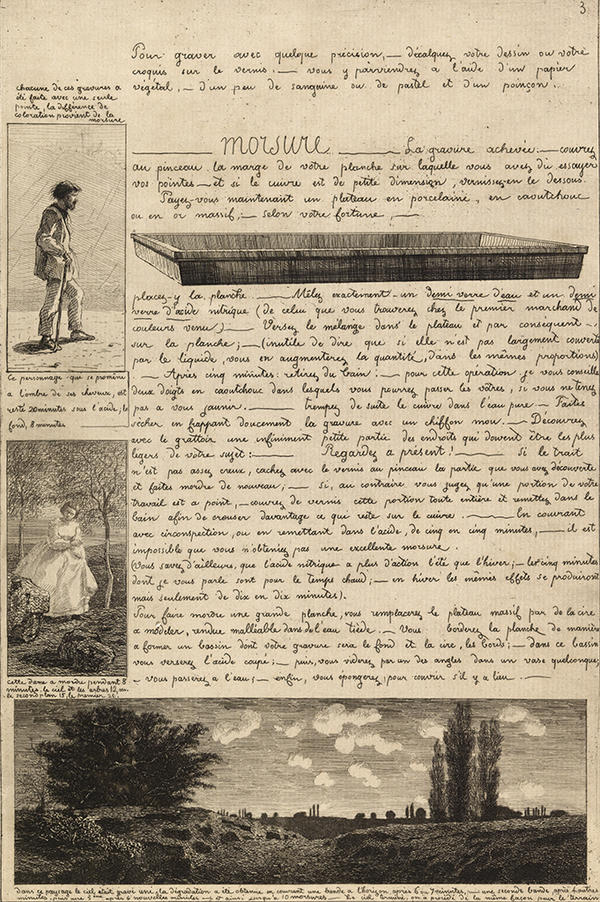 3
Pour graver avec quelque précision, — décalquez votre dessin ou votre
croquis sur le vernis. — vous y parviendrez à l'aide d'un papier
végétal, — d'un peu de sanguine ou de pastel et d'un poinçon.
chacune de ces gravures a
été faite avec une seule
pointe, la différence de
coloration provient de la
morsure
morsure — La gravure achevée — couvrez
au pinceau la marge de vôtre planche sur laquelle vous avez dû essayer
vos pointes — et si le cuivre est de petite dimension, vernissez-en le dessous.
Payez-vous maintenant un plateau en porcelaine, en caoutchouc
ou en or massif, — selon vôtre fortune, —
placez-y la planche. — Mêlez exactement un demi verre d'eau et un demi
verre d'acide nitrique (de celui que vous trouverez chez le premier marchand de
couleurs venu) — Versez le mélange dans le plateau et par conséquent —
sur la planche; — (inutile de dire que si elle n'est pas largement couverte
par le liquide, vous en augmenterez la quantité, dans les mêmes proportions)
— Après cinq minutes: retirez du bain! — pour cette opération je vous conseille
deux doigts en caoutchouc dans lesquels vous pourrez passer les vôtres si vous ne tenez
pas à vous jaunir. — trempez de suite le cuivre dans l'eau pure — Faites
sécher en frappant doucement la gravure avec un chiffon mou. — Découvrez
avec le grattoir une infiniment petite partie des endroits qui doivent être les plus
légers de votre sujet: — Regardez à présent! — Si le trait
n'est pas assez creux, cachez avec le vernis au pinceau la partie que vous avez découverte
et faites mordre de nouveau; — Si, au contraire vous jugez qu'une portion de votre
travail est à point, — couvrez de vernis cette portion toute entière et remettez dans le
bain afin de creuser davantage ce qui reste sur le cuivre. — En couvrant
avec circonspection, ou en remettant dans l'acide, de cinq en cinq minutes, — il est
impossible que vous n'obteniez pas une excellente morsure.
(Vous savez d'ailleurs, que l'acide nitrique a plus d'action l'été que l'hiver; — les cinq minutes
dont je vous parle sont pour le temps chaud; — en hiver les mêmes effets se produiront
mais seulement de dix en dix minutes).
Pour faire mordre une grande planche, vous remplacerez le plateau massif par de la cire
à modeler, rendue malléable dans de l'eau tiède. — Vous borderez la planche de manière
à former un bassin dont vôtre gravure sera le fond et la cire, les bords; — dans ce bassin
vous verserez l'acide coupé; — puis, vous viderez par un des angles dans un vase quelconque,
— vous passerez à l'eau; — enfin, vous épongerez, pour couvrir s'il y a lieu. —
Ce personnage qui se promène
à l'ombre de ses cheveux, est
resté 20 minutes sous l'acide; le
fond, 8 minutes
Cette dame a mordu pendant 8
minutes, le ciel et les arbres 12,
le second plan 15, le premier 25.
Dans ce paysage le ciel était gravé uni, la dégradation a été obtenue en couvrant une bande à l'horizon après 6 ou 7 minutes, — une seconde bande, après 4 autres
minutes, 10 morsures — Le ciel terminé, on a procédé de la même façon pour le terrain